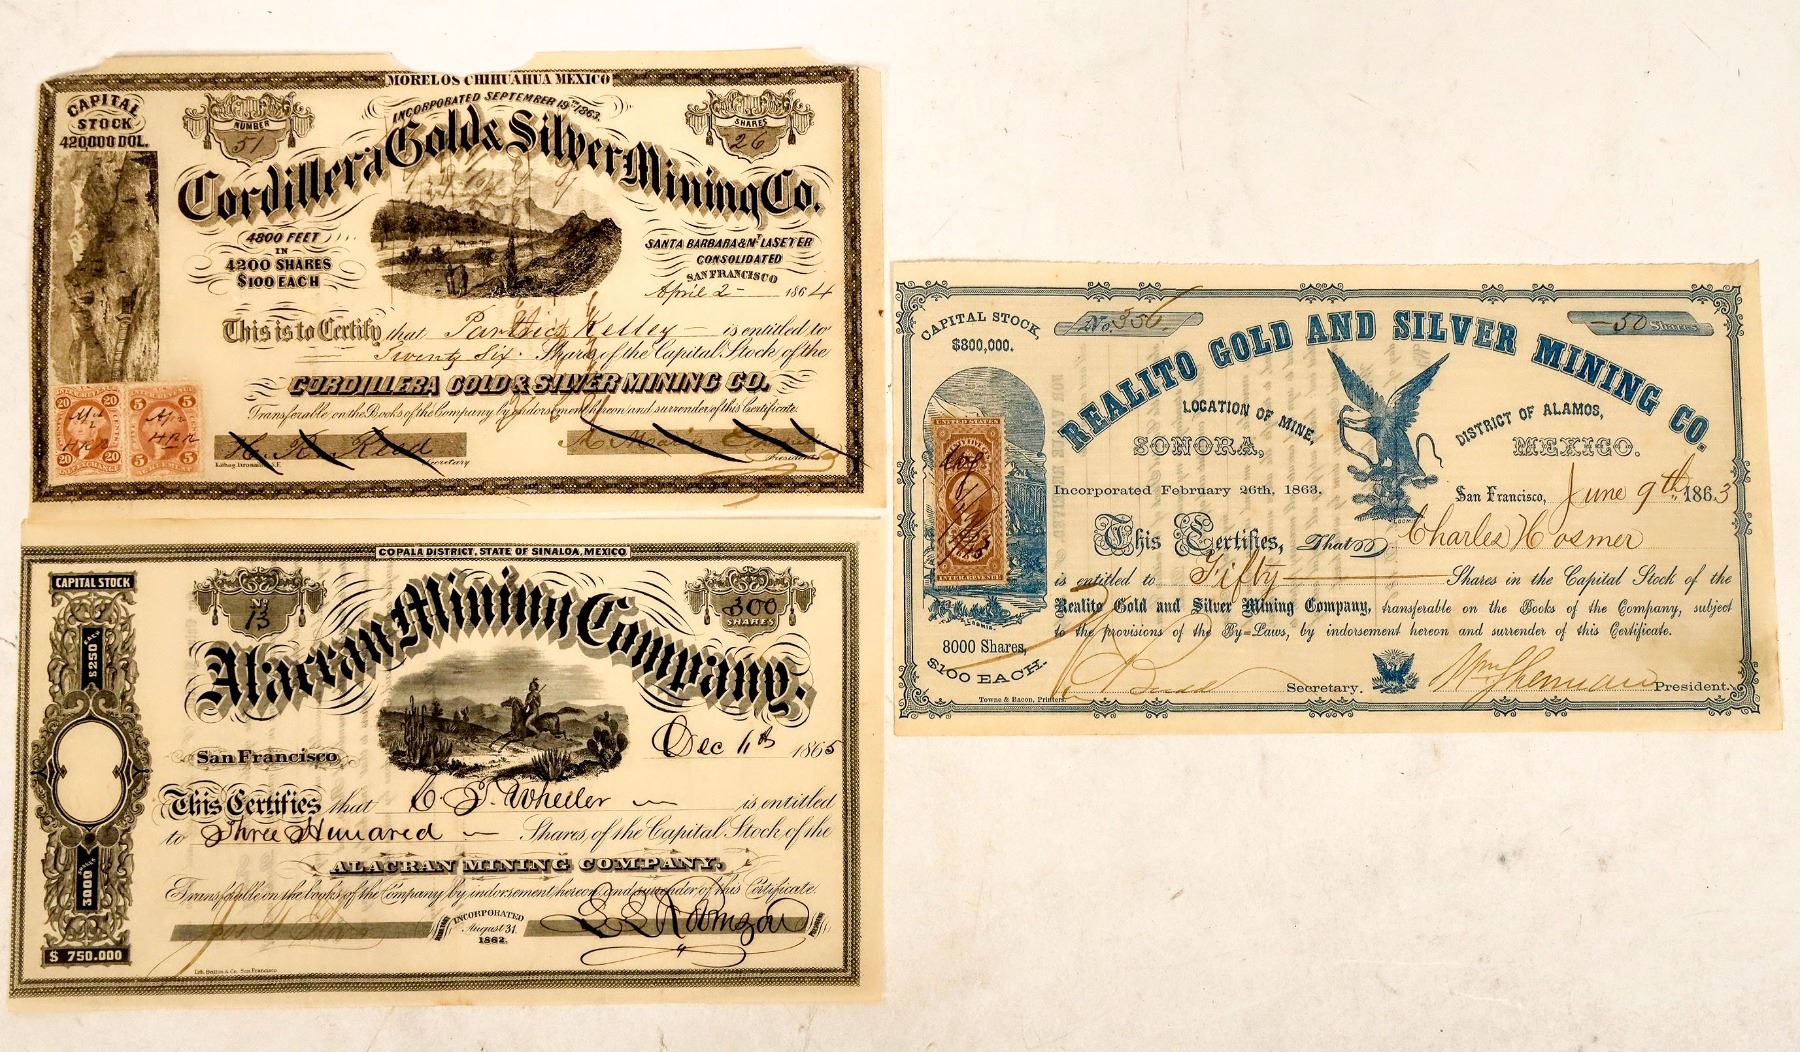 MORELOS CHIHUAHUA MEXICO
CAPITAL
STOCK
420,000 DOL.
INCORPORATED SEPTEMBER 19TH 1863.
NUMBER
51
SHARES
26
Cordillera Gold & Silver Mining Co.
4800 FEET
IN
4200 SHARES
$100 EACH
SANTA BARBARA & MT LASETER
CONSOLIDATED
SAN FRANCISCO
April 2 1864
This is to Certify that Patrick Kelley is entitled to
Twenty Six Shares of the Capital Stock of the
CORDILLERA GOLD & SILVER MINING CO.
Transferable on the Books of the Company by endorsement hereon and surrender of this Certificate.
20 20 5 5
20 20 5 5
H. R. Reed Secretary
President
COPALA DISTRICT, STATE OF SINALOA, MEXICO
CAPITAL STOCK
$250 EACH
3000 SHARES
$ 750.000
No
13
300
SHARES
Alacran Mining Company.
San Francisco Dec 6th 1865
This Certifies that C. J. Wheeler is entitled
to Three Hundred Shares, of the Capital Stock of the
ALACRAN MINING COMPANY,
Transferable on the books of the Company by indorsement hereon and surrender of this Certificate.
INCORPORATED
August 31
1862.
Lith. Britton & Co. San Francisco
CAPITAL STOCK,
$800,000.
No. 356
50 Shares
REALITO GOLD AND SILVER MINING CO.
LOCATION OF MINE,
DISTRICT OF ALAMOS,
SONORA,
MEXICO.
UNITED STATES
INTER. REVENUE
Incorporated February 26th, 1863.
San Francisco, June 9th 1863
This Certifies, That Charles Hosmer
is entitled to Fifty Shares in the Capital Stock of the
Realito Gold and Silver Mining Company, transferable on the Books of the Company, subject
to the provisions of the By-Laws, by indorsement hereon and surrender of this Certificate.
8000 Shares,
$100 EACH.
Secretary.
Wm Sherman President.
Towne & Bacon, Printers.